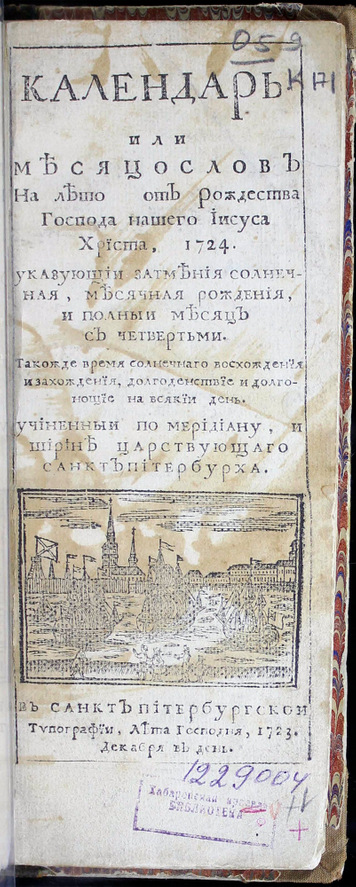 059
КАЛЕНДАРЬ
КП
ИЛИ
МѢСЯЦОСЛОВЪ
На лѣто отъ рождества
Господа нашего Іисуса
Хрїста, 1724.
указующїи затмѣнїя солнеч-
ная, мѣсячная рожденїя,
и полныи мѣсяцъ
съ четвертьми.
Такожде время солнечнаго восхожденїя
и захожденїя, долгоденствїе и долго-
нощїе на всякїи день.
учїненныи по мерїдїану, и
шїрїнѣ царствующаго
санктъпїтербурха.
въ санктъпїтербургскои
Тѵпографїи, Лѣта Господня, 1723.
Декабря въ день.
1229004
Хабаровская краевая
БИБЛИОТЕКА